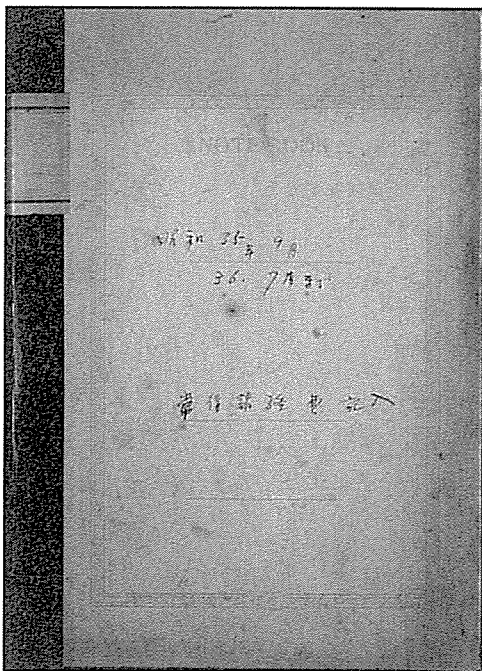 NOTE BOOK
昭和 35年 9月
36. 7月まで
常住諸経費記入